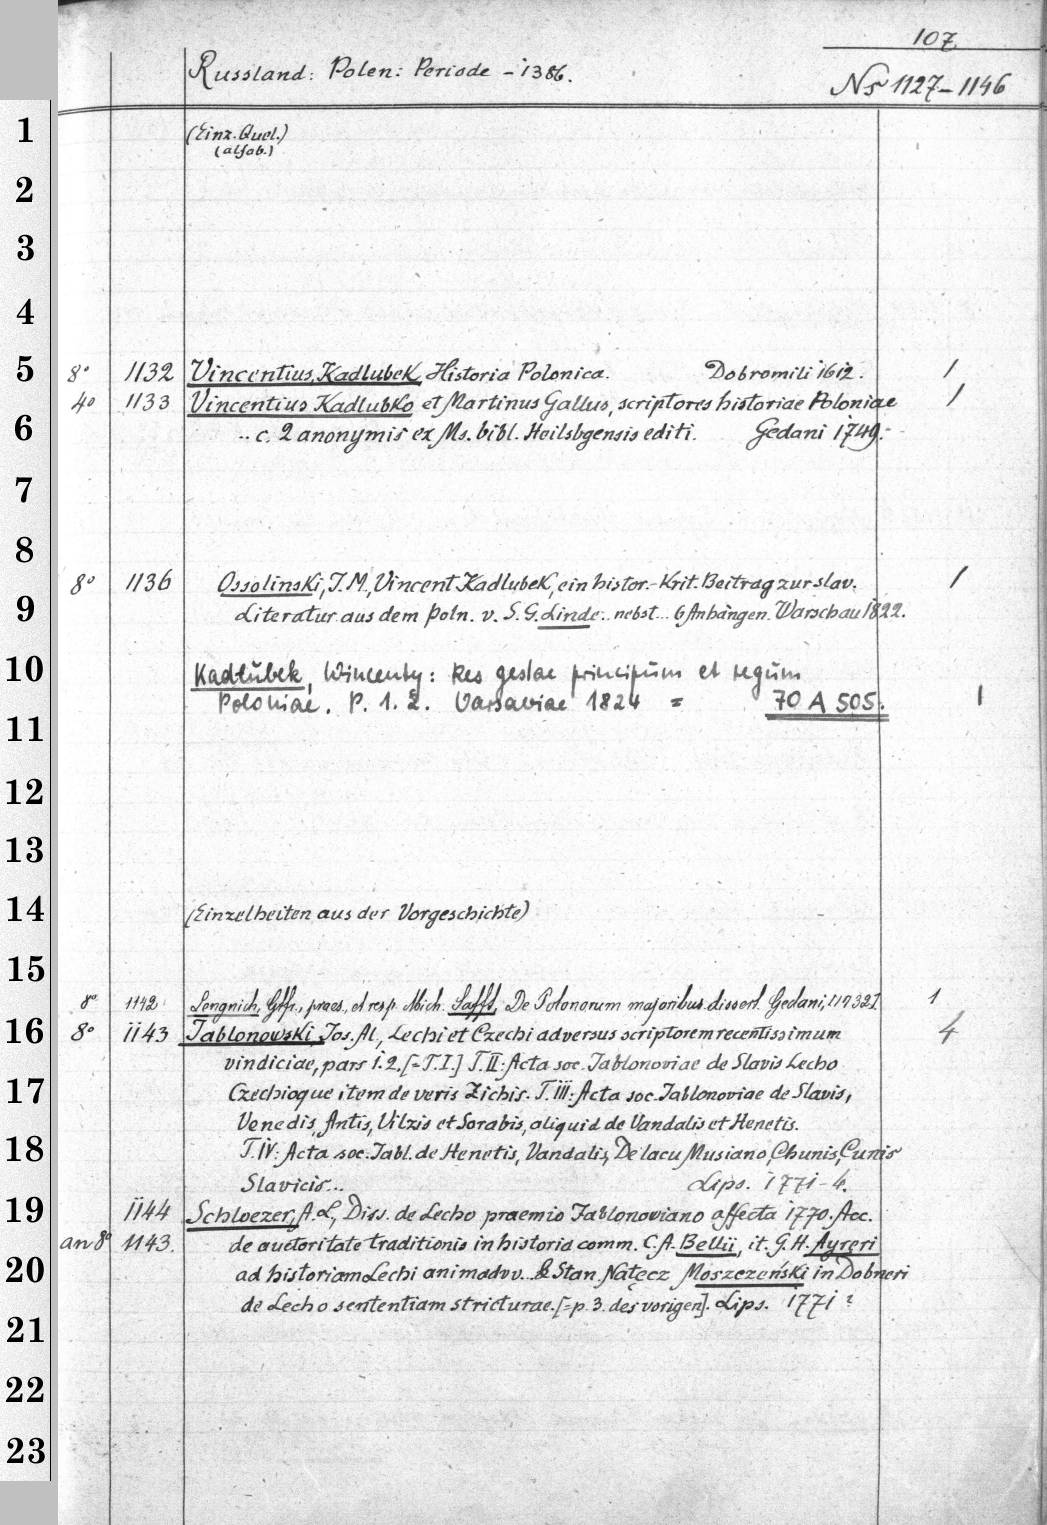 107
Russland: Polen: Periode -1386.
Nr 1127-1146
1
(Einz. Quel.)
(alfab.)
2
3
4
5
8° 1132 Vincentius Kadlubek, Historia Polonica. Dobromili 1612. 1
4° 1133 Vincentius Kadlubko et Martinus Gallus, scriptores historiae Poloniae 1
6
.. c. 2 anonymis ex Ms. bibl. Heilsbgensis editi. Gedani 1749.
7
8
8° 1136 Ossolinski, J. M., Vincent Kadlubek, ein histor.-krit. Beitrag zur slav. 1
9
Literatur aus dem Poln. v. S. G. Linde.. nebst... 6 Anhängen. Warschau 1822.
10
Kadłubek, Wincenty: Res gestae principum et regum
Poloniae. P. 1. 2. Varsaviae 1824 = 70 A 505. 1
11
12
13
14
(Einzelheiten aus der Vorgeschichte)
15
8° 1142 Lengnich, Gfr., praes., et resp. Mich. Safft, De Polonorum majoribus dissert. Gedani, [1732]. 1
16
8° 1143 Jablonowski, Jos. Al., Lechi et Czechi adversus scriptorem recentissimum 4
vindiciae, pars 1. 2. [= T. I.] T. II: Acta soc. Jablonoviae de Slavis Lecho
17
Czechioque item de veris Zichis. T. III: Acta soc. Jablonoviae de Slavis,
Venedis, Antis, Vilzis et Sorabis, aliquid de Vandalis et Henetis.
18
T. IV: Acta soc. Jabl. de Henetis, Vandalis, De lacu Musiano, Chunis, Cunis
Slavicis... Lips. 1771-4.
19
1144 Schloezer, A. L., Diss. de Lecho praemio Jablonoviano affecta 1770. Acc.
an 8° 1143. de auctoritate traditionis in historia comm. C. A. Bellii, it. G. H. Ayreri
20
ad historiam Lechi animadvv... & Stan. Nałęcz Moszczeński in Dobneri
de Lecho sententiam stricturae. [= p. 3. des vorigen]. Lips. 1771
21
22
23